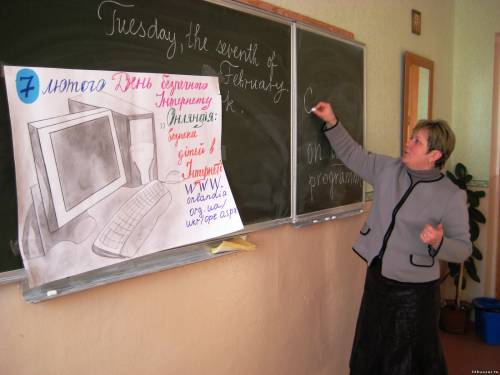 Tuesday, the seventh of
February.
k.
C
on
program
7 лютого День безпечного
Інтернету
"Онляндія:
безпека
дітей в
Інтернеті
www.
onlandia
org.ua/